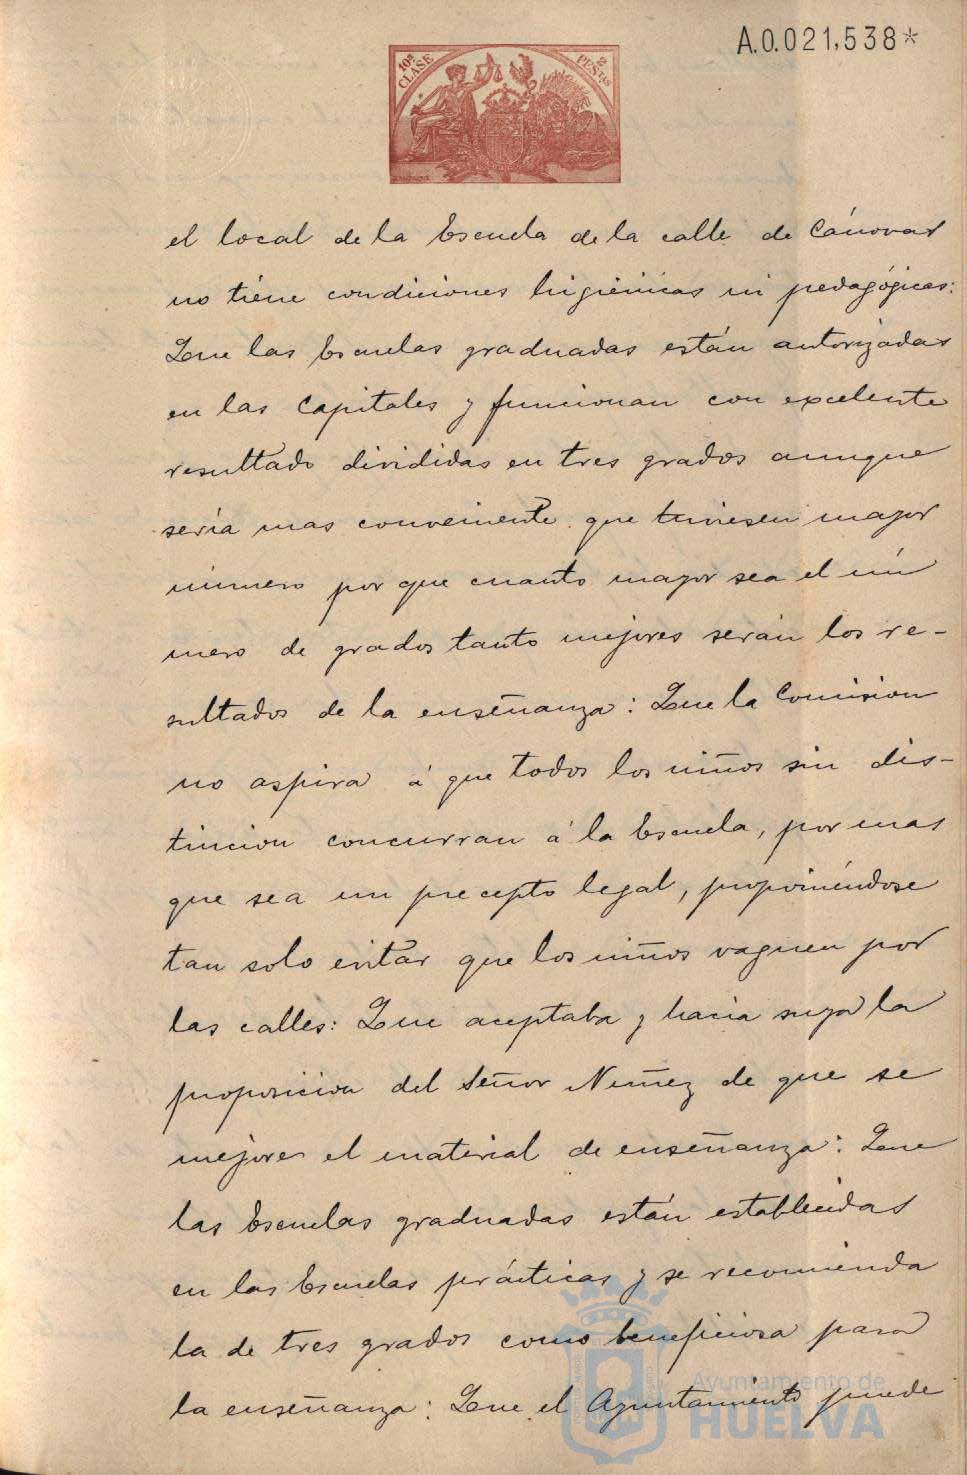 A.0.021,538*
10ª CLASE 2 PESTAS
el local de la Escuela de la calle de Cánovas
no tiene condiciones higiénicas ni pedagógicas:
Que las Escuelas graduadas están autorizadas
en las Capitales y funcionan con excelente
resultado divididas en tres grados aunque
sería mas conveniente que tuviesen mayor
número por que cuanto mayor sea el nú
mero de grados tanto mejores serán los re-
sultados de la enseñanza: Que la Comision
no aspira á que todos los niños sin dis-
tincion concurran á la Escuela, por mas
que sea un precepto legal, proponiéndose
tan solo evitar que los niños vaguen por
las calles: Que aceptaba y hacia suya la
proposicion del Señor Nuñez de que se
mejore el material de enseñanza: Que
las Escuelas graduadas están establecidas
en las Escuelas prácticas y se recomienda
la de tres grados como beneficiosa para
la enseñanza: Que el Ayuntamiento puede
Ayuntamiento de
HUELVA